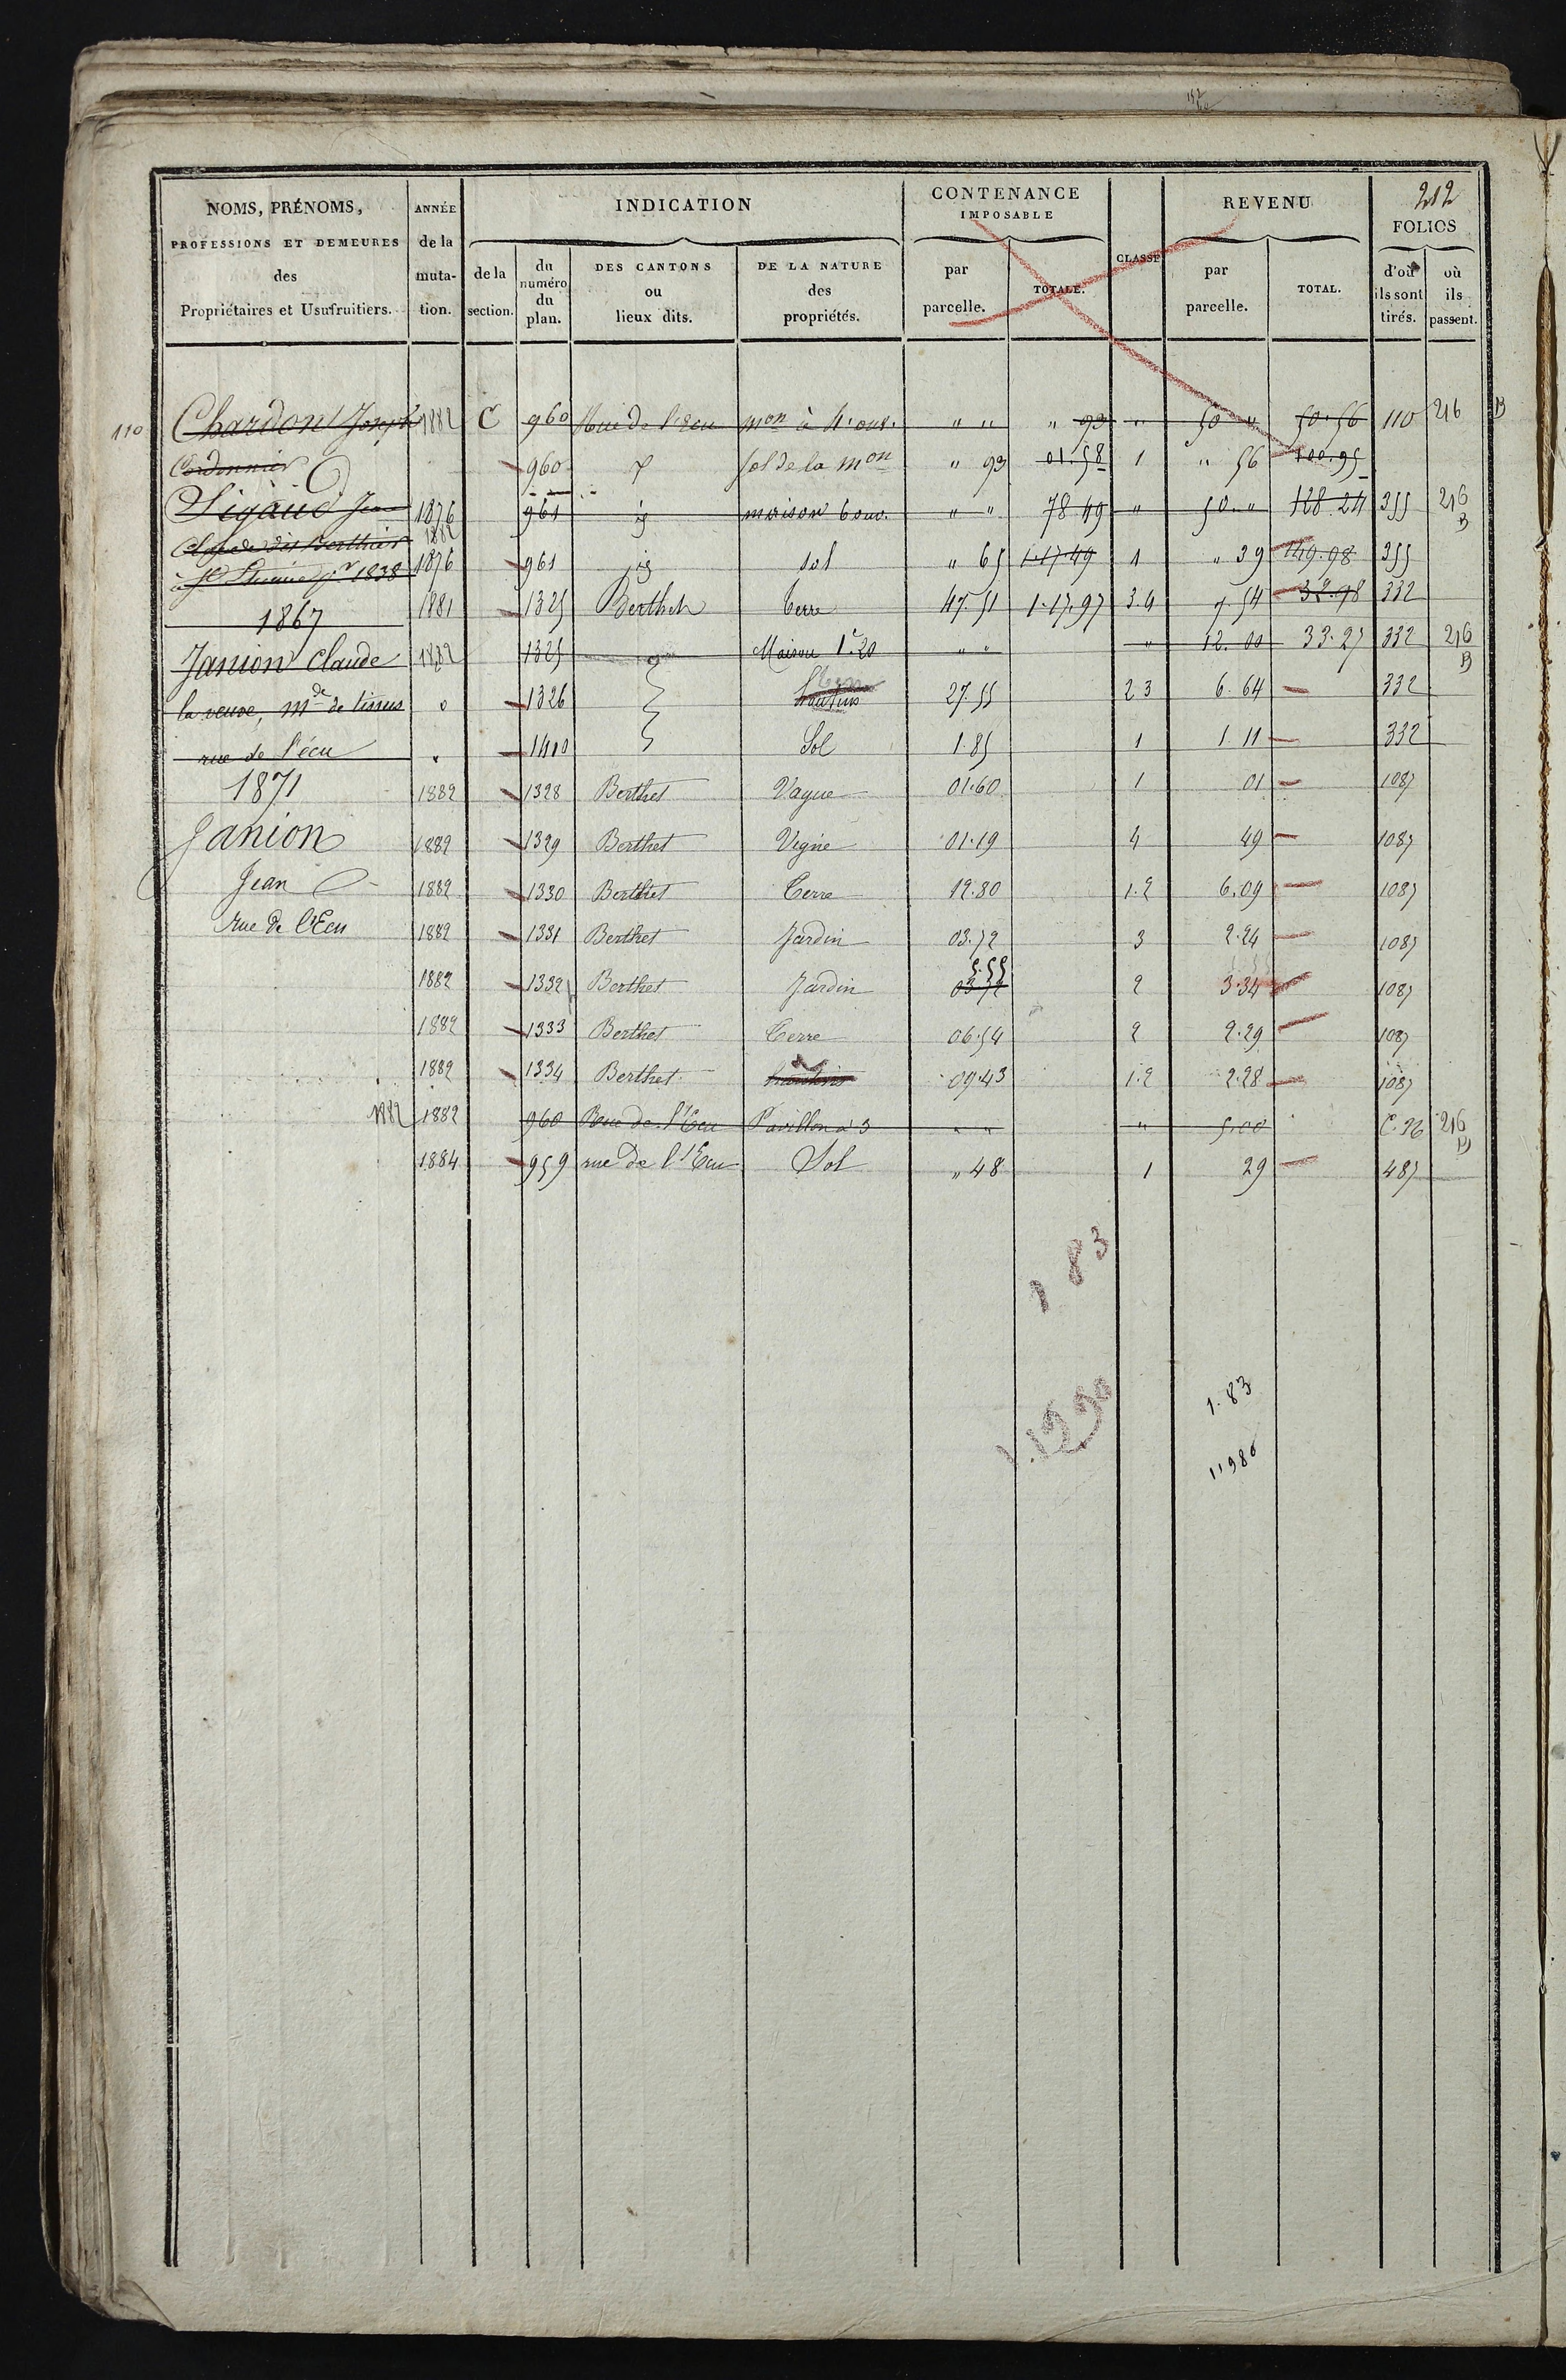 212
NOMS, PRÉNOMS, PROFESSIONS ET DEMEURES des Propriétaires et Usufruitiers.
ANNÉE de la muta- tion.
INDICATION
de la section.
du numéro du plan.
DES CANTONS ou lieux dits.
DE LA NATURE des propriétés.
CONTENANCE IMPOSABLE
par parcelle.
TOTALE.
CLASSE
REVENU
par parcelle.
TOTAL.
FOLIOS
d'où ils sont tirés.
où ils passent.
110 Chardon Joseph 1882 C 960 Rue de l'Ecu mon à 4 ouv. " " " 93 " 50 " 50.56 110 216 B
Cordonnier 960 sol de la mon " 93 01.58 1 " 56 100.95
Sigaud Jean 1876 1882 961 id maison 6 ouv. " " 78 49 " 50 " 128 24 355 216 B
dit Berthier 1876 961 id sol " 65 1.17.49 1 " 39 149.98 355
à St Etienne pr 1838
1867 1881 1325 Berthet terre 47.51 1.17.97 3.4 7.54 32.98 332
Janion Claude 1882 1325 Maison 1re 20 " " " 12.00 33.27 332 216 B
la veuve, mde de tissus " 1326 hautins terre 27.55 2 3 6.64 332
rue de l'écu " 1410 Sol 1.85 1 1.11 332
1871 1882 1328 Berthet Vague 01.60 1 01 1087
Janion 1882 1329 Berthet Vigne 01.19 4 49 1087
Jean 1882 1330 Berthet Terre 12.80 1.2 6.09 1087
rue de l'Ecu 1882 1331 Berthet Jardin 03.72 3 2.24 1087
1882 1332 Berthet Jardin 03.72 5.55 2 3.34 1087
1882 1333 Berthet Terre 06.54 2 2.29 1087
1882 1334 Berthet hautins 09.43 1.2 2.28 1087
1882 1882 960 Rue de l'Ecu Pavillon à 3 " " " 5.00 C.26 216 B
1884 959 rue de l'Ecu Sol " 48 1 29 487
1 83
1.83